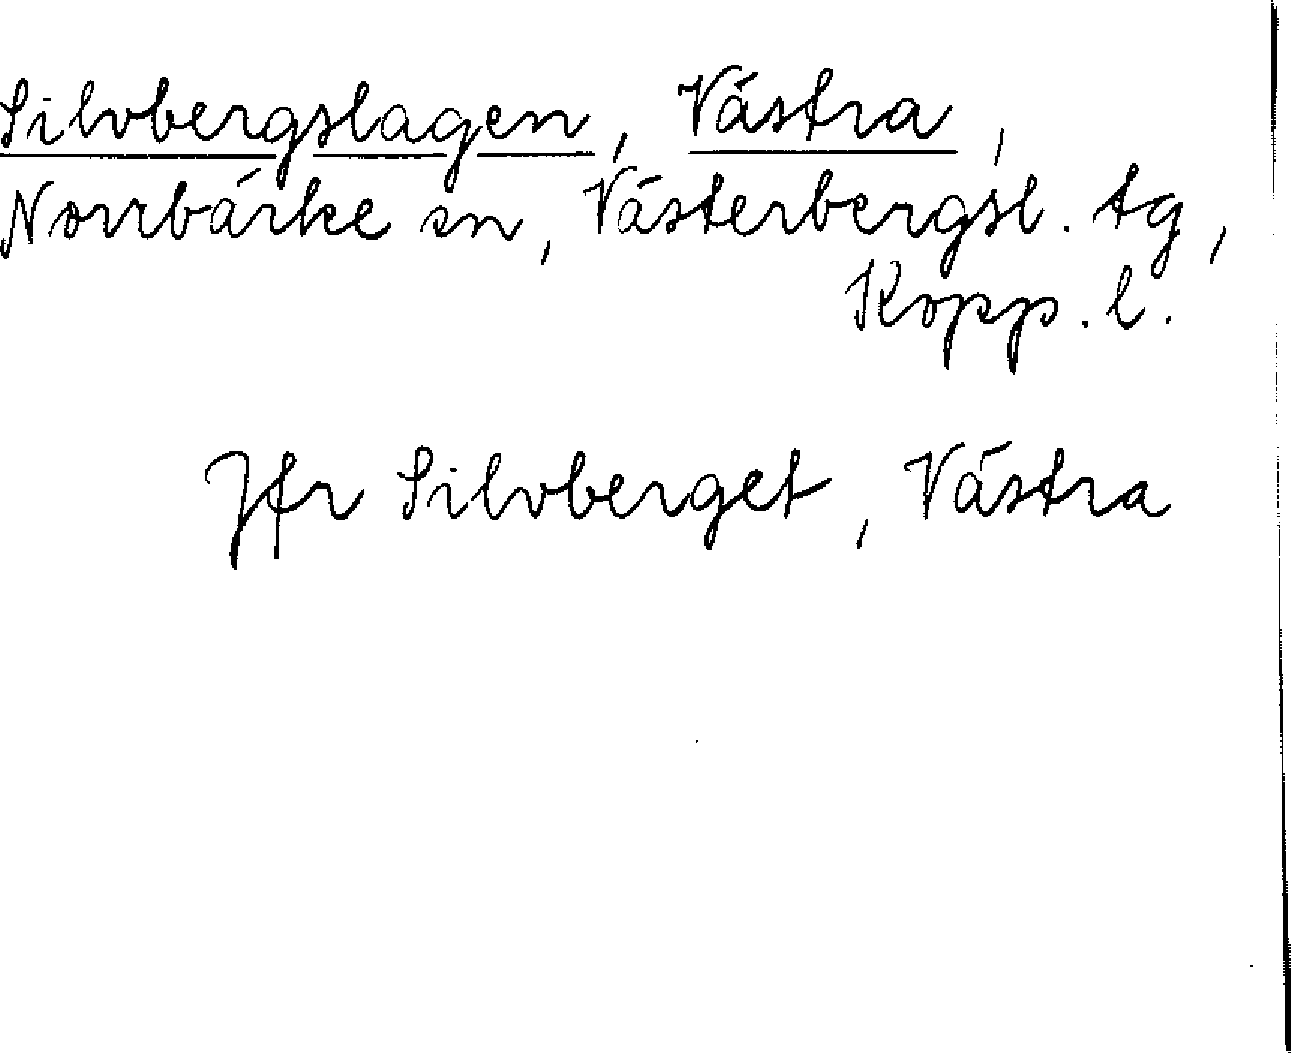 Silvbergslagen, Västra,
Norrbärke sn, Västerbergsl. tg,
Kopp. l.
Jfr Silvberget, Västra